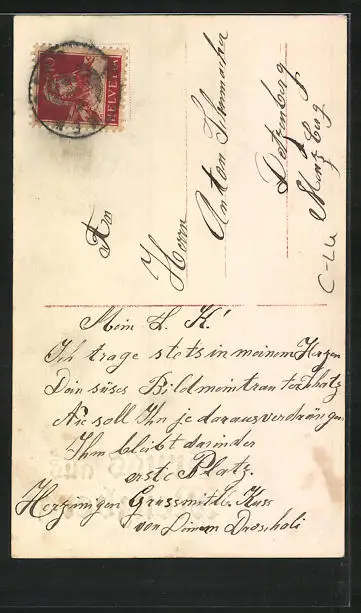 HELVETIA
An
Herrn
Anton Schumacher
Dotzenberg
C-Lu
Mein L. K!
Ich trage stets in meinem Herzen
Dein süses Bild mein trauter Schatz
Nie soll Ihn je daraus verdrängen
Ihm bleibt darin der
erste Platz.
Herzinigen Gruss mitl. Kuss
von Deinem